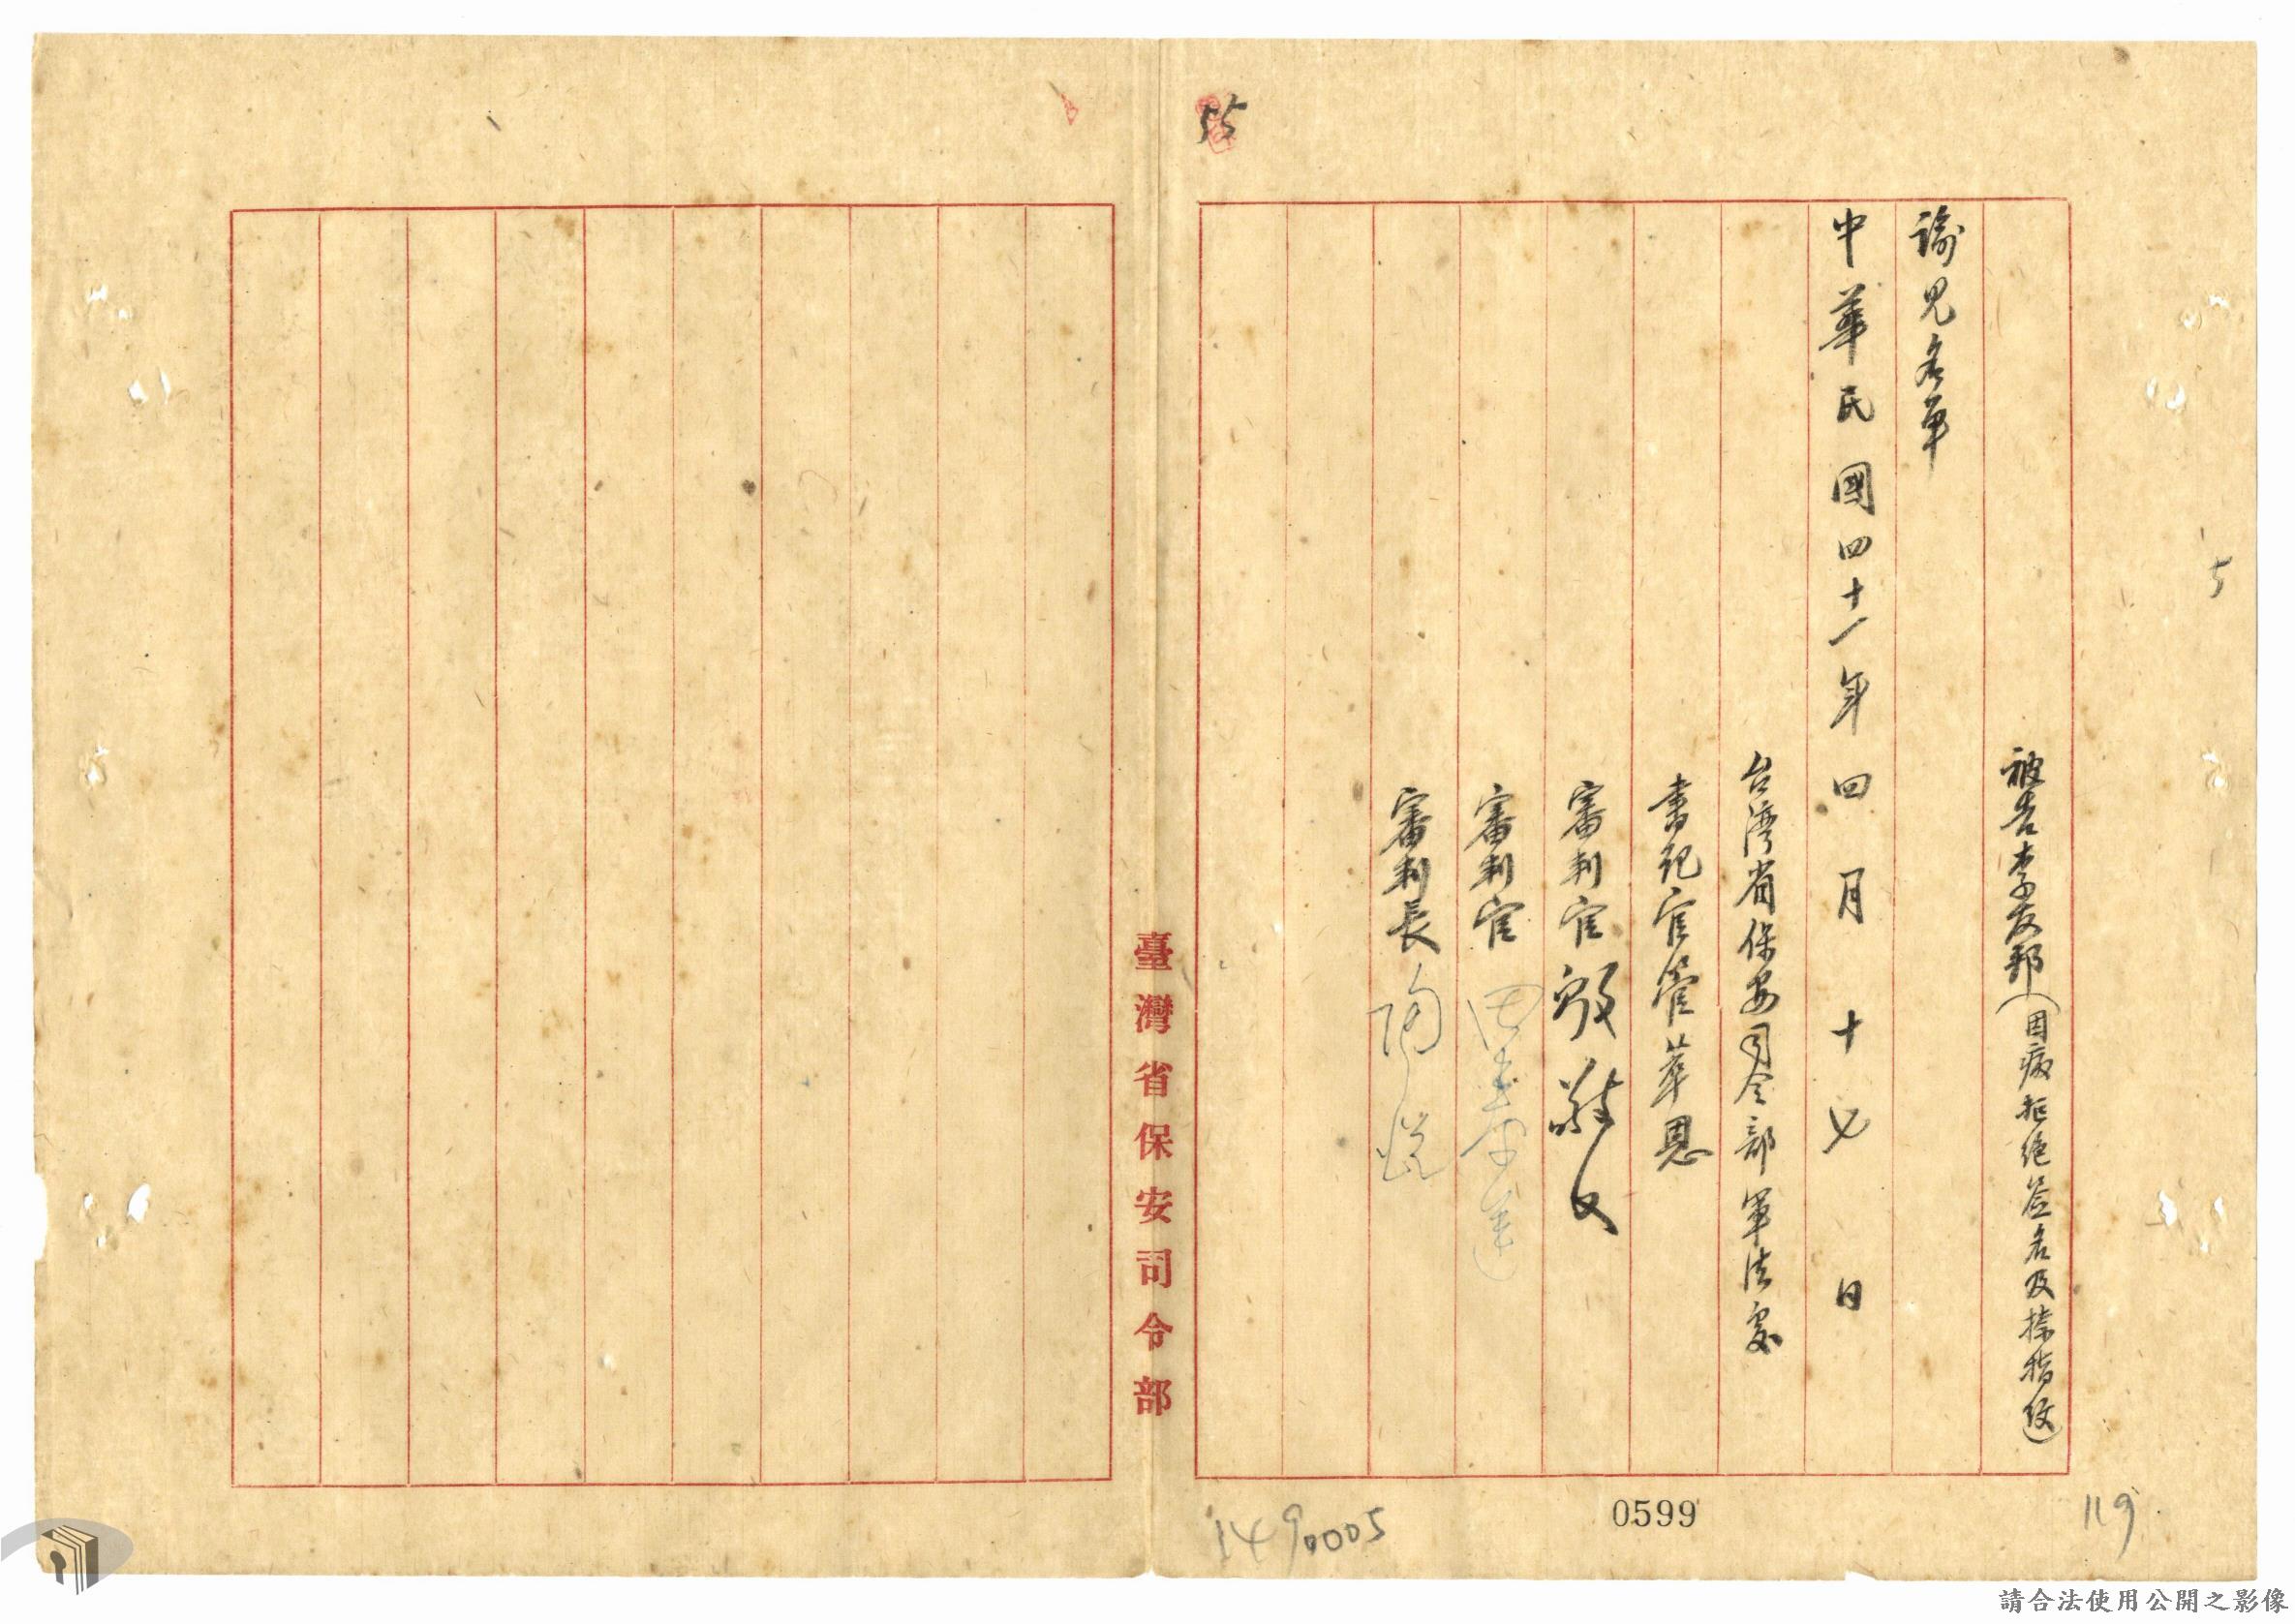 被告李友邦（因病拒絕簽名及捺指紋）
諭見名單
中華民國四十一年四月十七日
台湾省保安司令部軍法處
書記官管萃恩
審判官殷敬文
審判官
審判長陶
臺灣省保安司令部
55
5
0599
119
1490005
請合法使用公開之影像